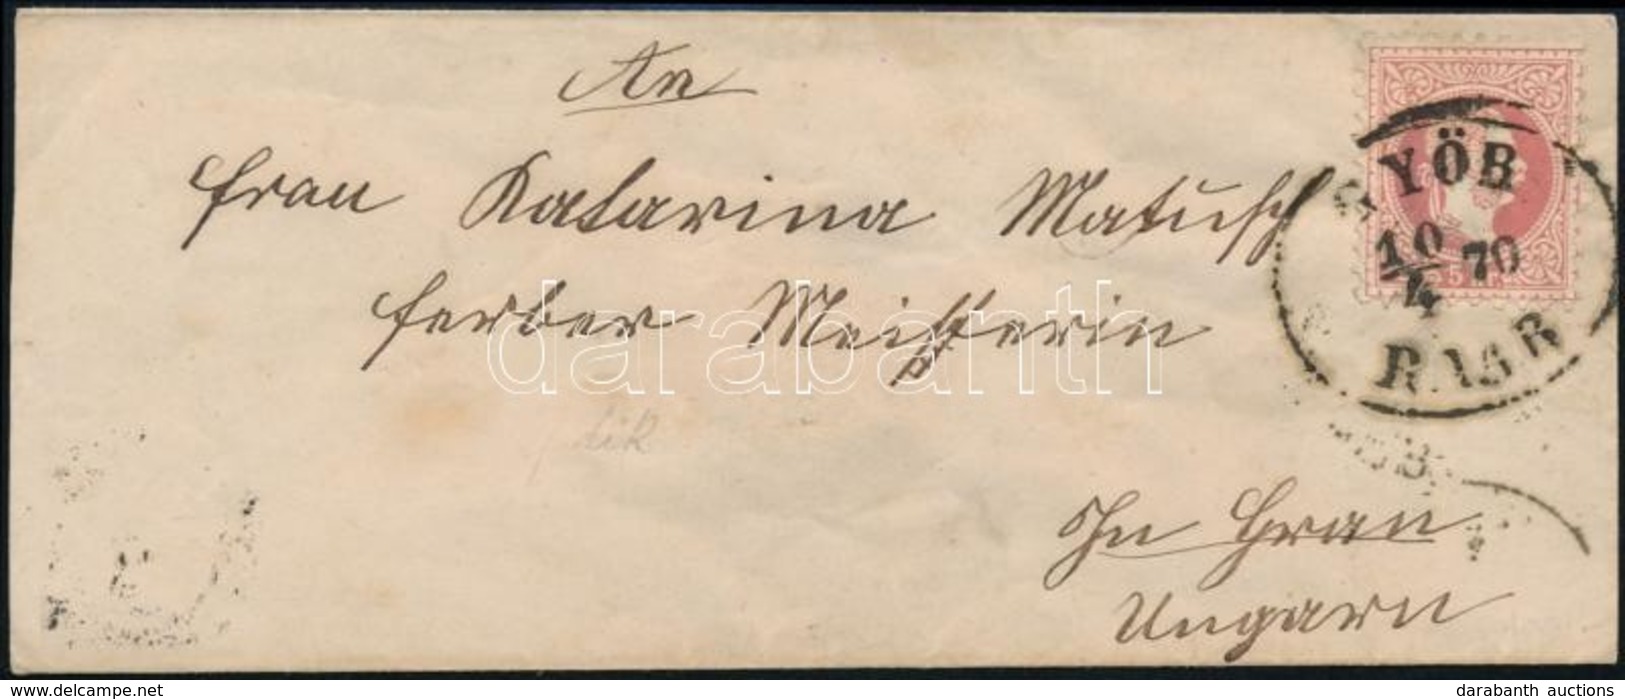 An
frau Katarina Matusch
ferber Meisterin
In Gran
Ungarn
GYÖR
10/4 70
RAAB
darabanth
delcampe.net
darabanth auctions